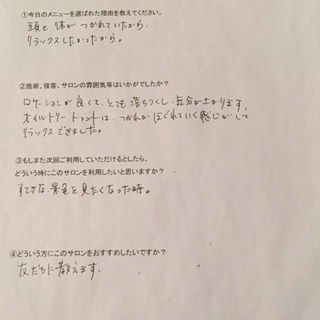 ①今日のメニューを選ばれた理由を教えてください。
頭と体がつかれていたから、
リラックスしたかったから。
②施術、接客、サロンの雰囲気等はいかがでしたか?
ロケーションが良くて、とても落ちつくし、気分が上がります。
オイルトリートメントは、つかれがほぐれていく感じがして、
リラックスできました。
③もしまた次回ご利用していただけるとしたら、
どういう時にこのサロンを利用したいと思いますか?
すてきな景色を見たくなった時。
④どういう方にこのサロンをおすすめしたいですか?
友だちに教えます。